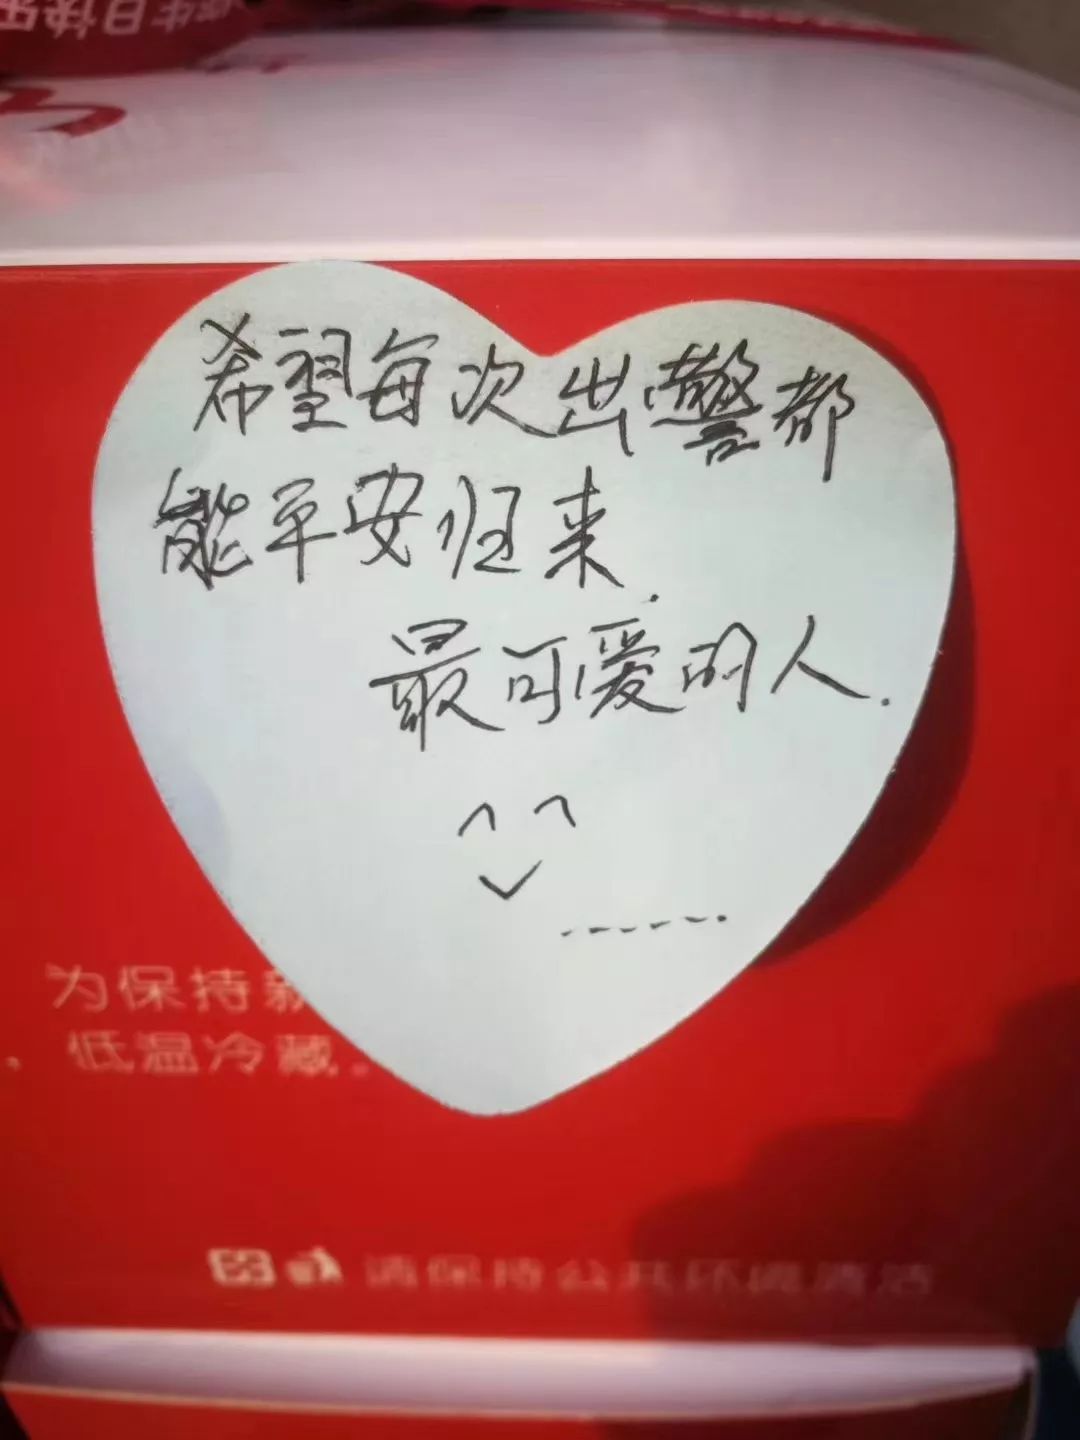 生日快乐
希望每次出警都
能平安归来.
最可爱的人.
为保持新
、低温冷藏.
请保持公共环境清洁